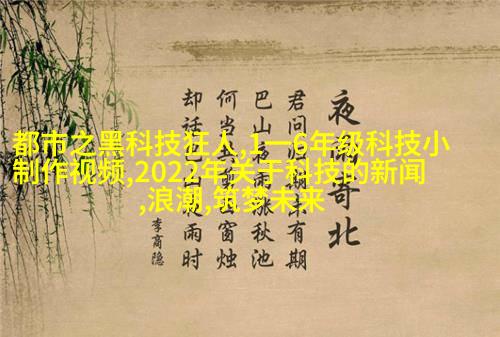 都市之黑科技狂人,1一6年级科技小
制作视频,2022年关于科技的新闻
,浪潮,筑梦未来
夜雨寄北
君问归期未有期
巴山夜雨涨秋池
何当共剪西窗烛
却话巴山夜雨时
李商隐